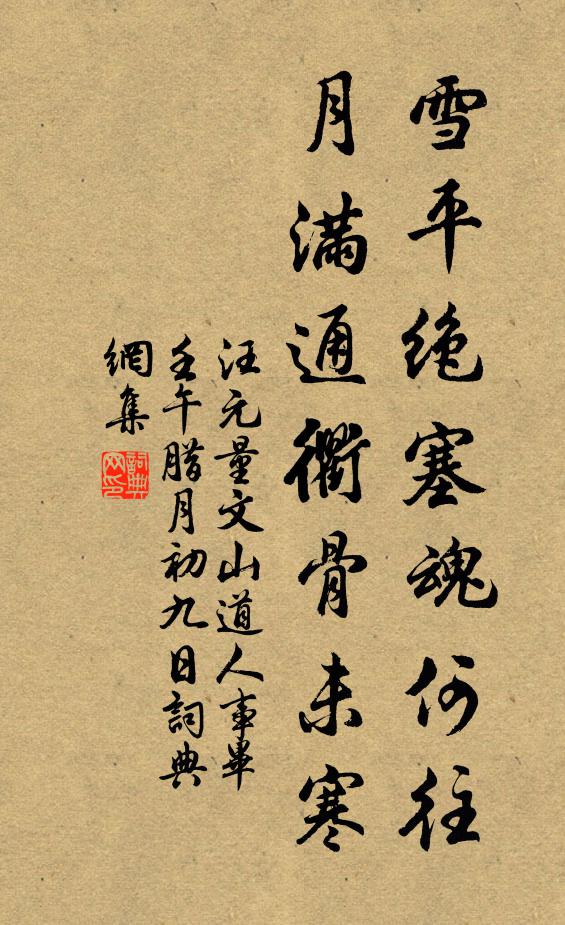 雪平绝塞魂何往
月满通衢骨未寒
汪元量文山道人事毕
壬午腊月初九日词典
网集
词典网印